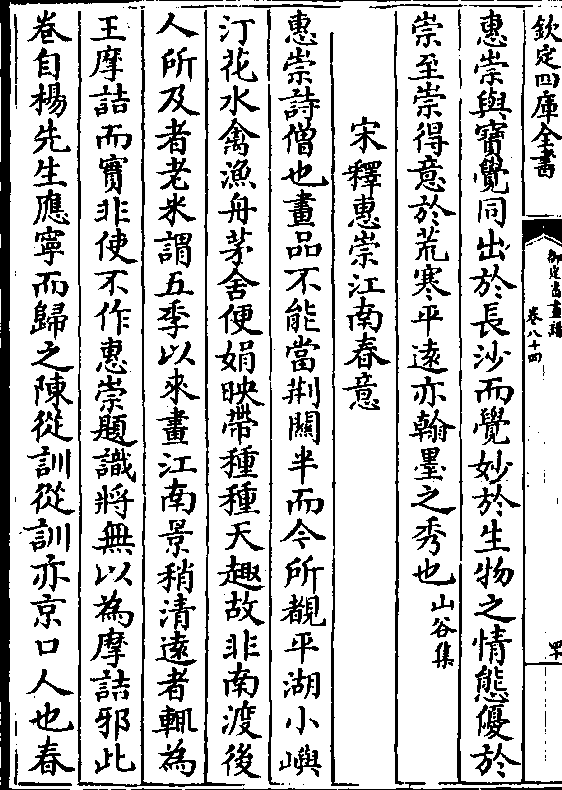 欽定四庫全書
御定書畫譜
卷八十四
惠崇與寶覺同出於長沙而覺妙於生物之情態優於
崇至崇得意於荒寒平遠亦翰墨之秀也山谷集
宋釋惠崇江南春意
惠崇詩僧也畫品不能當荆關半而今所覩平湖小嶼
汀花水禽漁舟茅舍便娟映帶種種天趣故非南渡後
人所及者老米謂五季以來畫江南景稍清遠者輒為
王摩詰而實非使不作惠崇題識將無以為摩詰邪此
卷自楊先生應寧而歸之陳從訓從訓亦京口人也春